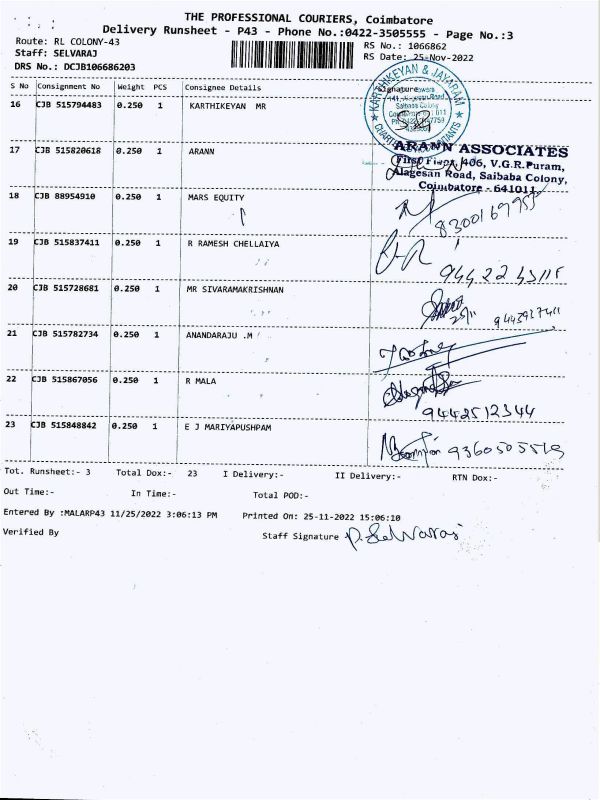 THE PROFESSIONAL COURIERS, Coimbatore
Delivery Runsheet - P43 - Phone No.:0422-3505555 - Page No.:3
Route: RL COLONY-43
RS No.: 1066862
Staff: SELVARAJ
RS Date: 25-Nov-2022
DRS No.: DCJB106686203
S No Consignment No Weight PCS Consignee Details Signature
KARTHIKEYAN & JAYARAM
16 CJB 515794483 0.250 1 KARTHIKEYAN MR
17 CJB 515820618 0.250 1 ARANN
ARANN ASSOCIATES
First Floor, 406, V.G.R.Puram,
Alagesan Road, Saibaba Colony,
Coimbatore - 641011
18 CJB 88954910 0.250 1 MARS EQUITY
19 CJB 515837411 0.250 1 R RAMESH CHELLAIYA
20 CJB 515728681 0.250 1 MR SIVARAMAKRISHNAN
25/11
21 CJB 515782734 0.250 1 ANANDARAJU .M
22 CJB 515867056 0.250 1 R MALA
9442512344
23 CJB 515848842 0.250 1 E J MARIYAPUSHPAM
Tot. Runsheet:- 3 Total Dox:- 23 I Delivery:- II Delivery:- RTN Dox:-
Out Time:- In Time:- Total POD:-
Entered By :MALARP43 11/25/2022 3:06:13 PM Printed On: 25-11-2022 15:06:10
Verified By
Staff Signature P. Selvaraj